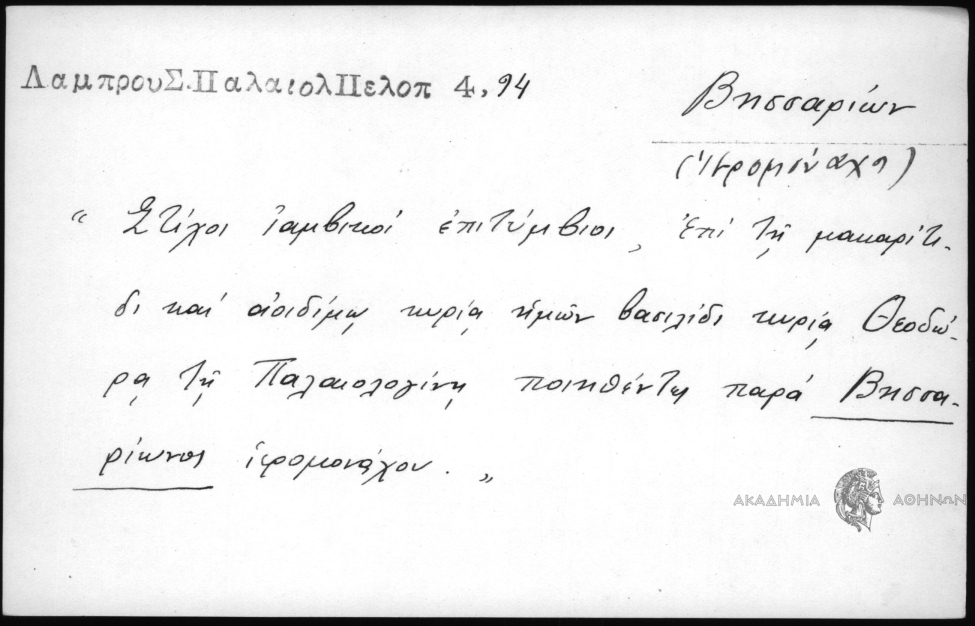 ΛαμπρουΣ.ΠαλαιολΠελοπ 4, 94
Βησσαρίων
(ἱερομόναχο)
“ Στίχοι ἰαμβικοί ἐπιτύμβιοι, ἐπί τῇ μακαρίτι-
δι καί ἀοιδίμῳ κυρίᾳ ἡμῶν βασιλίδι κυρίᾳ Θεοδώ-
ρᾳ τῇ Παλαιολογίνῃ ποιηθέντες παρά Βησσα-
ρίωνος ἱερομονάχου. „
ΑΚΑΔΗΜΙΑ ΑΘΗΝΩΝ